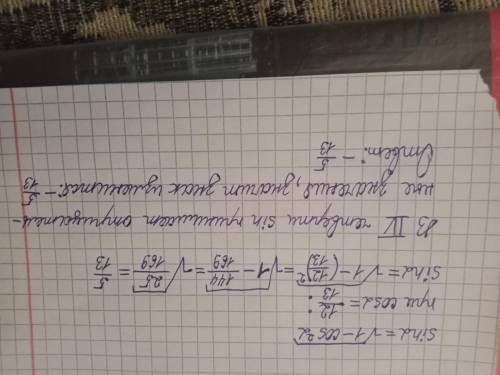 sinα = √1 - cos²α
при cosα = 12/13 :
sinα = √1 - (12/13)² = √1 - 144/169 = √25/169 = 5/13
В IV четверти sin принимает отрицатель-
ные значения, значит знак изменится: - 5/13
Ответ: - 5/13